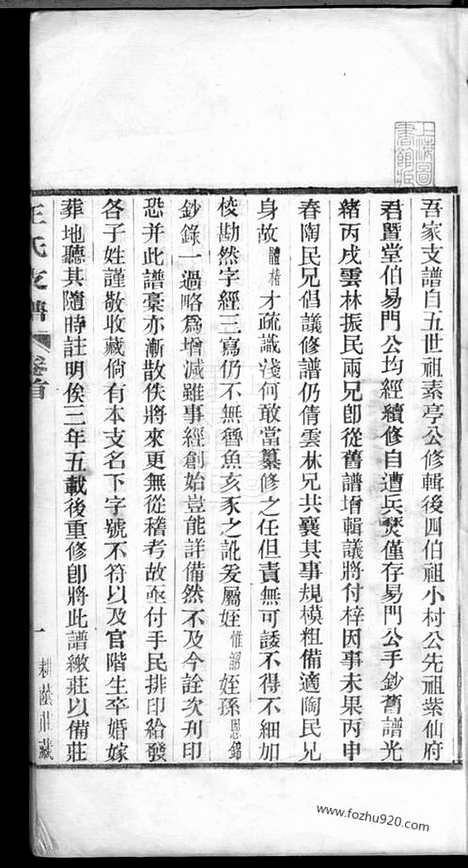 上海圖
書館藏
吾家支譜自五世祖素亭公修輯後四伯祖小村公先祖紫仙府
君暨堂伯易門公均經續修自遭兵燹僅存易門公手鈔舊譜光
緒丙戌雲林振民兩兄卽從舊譜增輯議將付梓因事未果丙申
春陶民兄倡議修譜仍倩雲林兄共襄其事規模粗備適陶民兄
身故體楷才疏識淺何敢當纂修之任但責無可諉不得不細加
校勘然字經三寫仍不無魯魚亥豕之訛爰屬姪惟韶姪孫恩錦
鈔錄一過略爲增減雖事經創始豈能詳備然不及今詮次刋印
恐并此譜槀亦漸散佚將來更無從稽考故亟付手民排印給發
各子姓謹敬收藏倘有本支名下字號不符以及官階生卒婚嫁
葬地聽其隨時註明俟三年五載後重修卽將此譜繳莊以備莊
王氏支譜 卷首 一 耕蔭莊藏
www.fozhu920.com